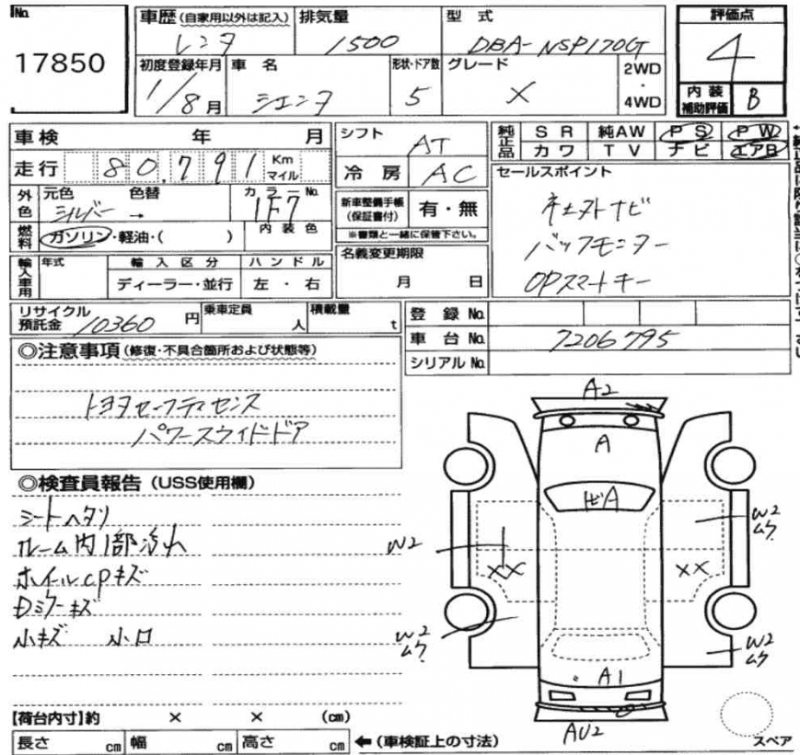 No. 17850
車歴 (自家用以外は記入) レンタ
排気量 1500
型式 DBA-NSP170G
評価点 4
内装補助評価 B
初度登録年月 1/8月
車名 シエンタ
形状・ドア数 5
グレード X
2WD・4WD
車検 年 月
シフト AT
純正品 SR 純AW PS PW
カワ TV ナビ エアB
走行 80,791 Km マイル
冷房 AC
セールスポイント
外色 元色 シルバー 色替 → カラーNo. 1F7
新車整備手帳(保証書付) 有・無
※書類と一緒に保管下さい。
バックモニター
OPスマートキー
燃料 ガソリン・軽油・( ) 内装色
名義変更期限 月 日
輸入車用 年式 輸入区分 ディーラー・並行 ハンドル 左・右
リサイクル預託金 10360円 乗車定員 人 積載量 t
登録No.
車台No. 7206795
シリアルNo.
◎注意事項 (修復・不具合箇所および状態等)
トヨタセーフティセンス
パワースライドドア
◎検査員報告 (USS使用欄)
シートヘタリ
ルーム内1部汚れ
ホイルcpキズ
小キズ 小凹
A2
A
A
W2
W2
ムケ
XX
XX
W2
ムケ
W2
ムケ
A1
AU2
スペア
【荷台内寸】約 × × (cm)
長さ cm 幅 cm 高さ cm ←(車検証上の寸法)